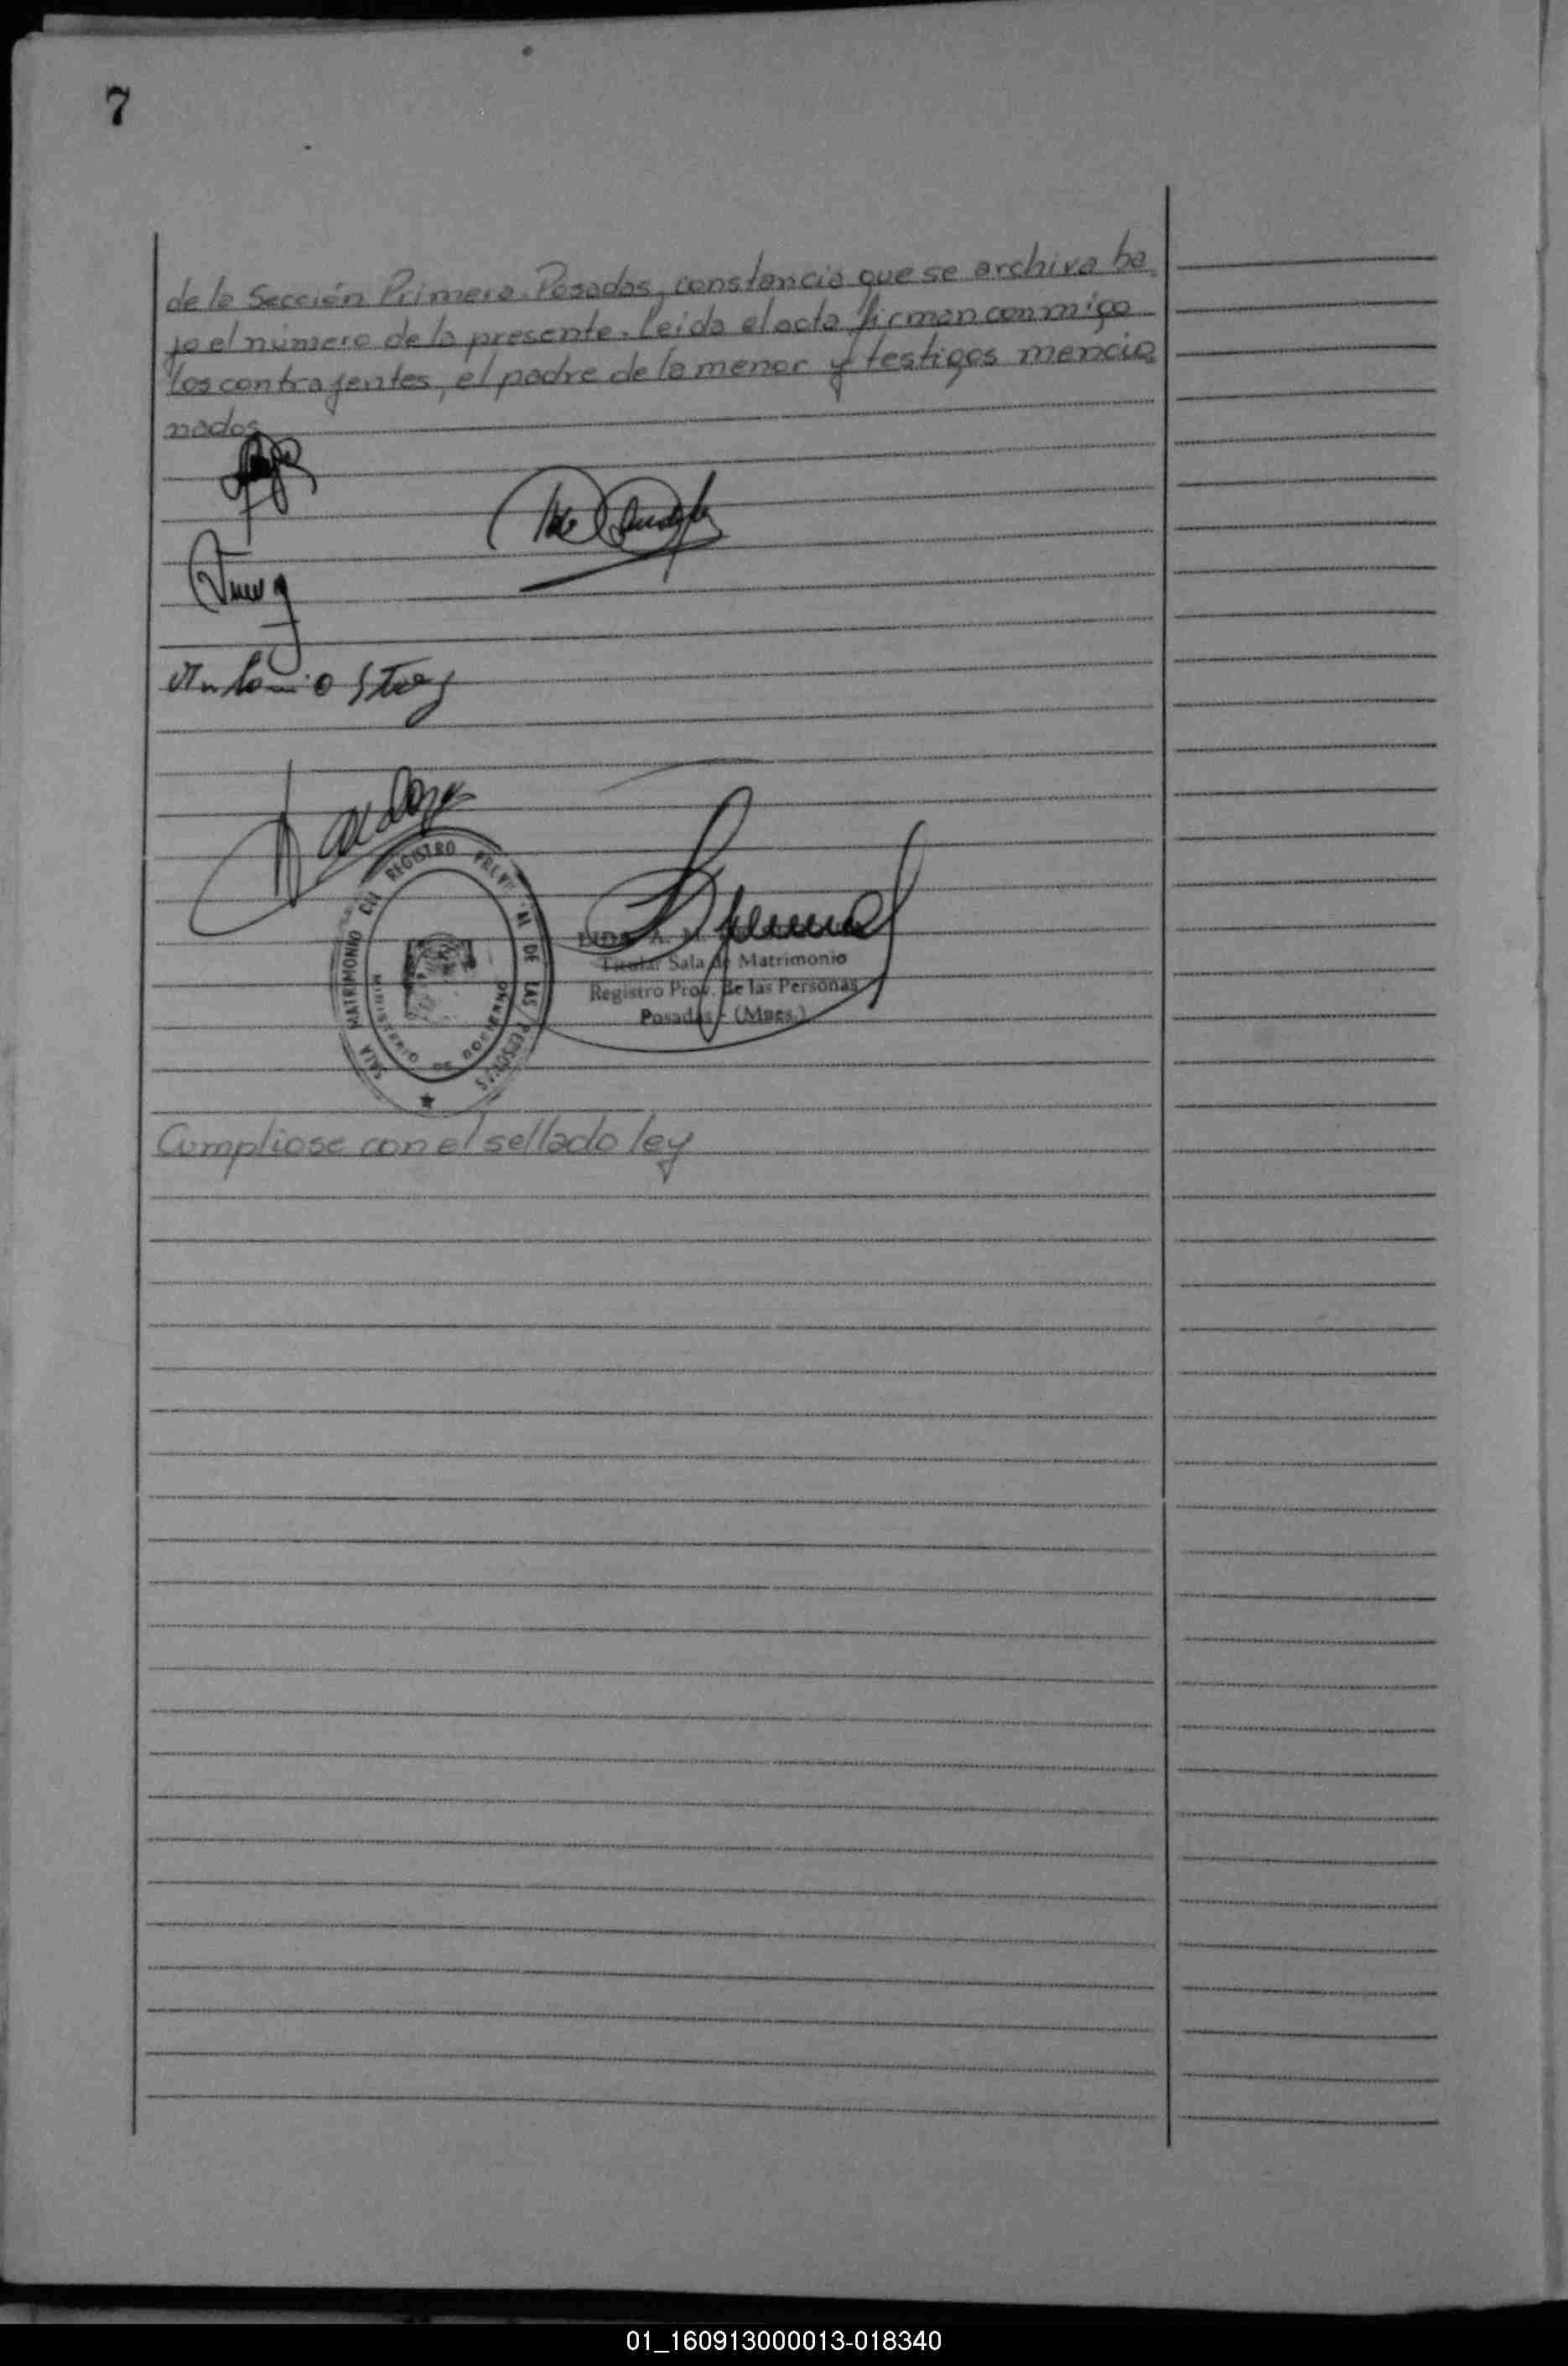 7
de la Sección Primera. Posadas, constancia que se archiva ba
jo el número de la presente. Leida el acta firman conmigo
los contrayentes, el padre de la menor y testigos mencio
nados
Antonio
SALA MATRIMONIO CH REGISTRO DE LAS PERSONAS
MINISTERIO DE GOBIERNO
LIDA A. M.
Titular Sala de Matrimonio
Registro Prov. de las Personas
Posadas - (Mnes.)
Cumpliose con el sellado ley
01_160913000013-018340